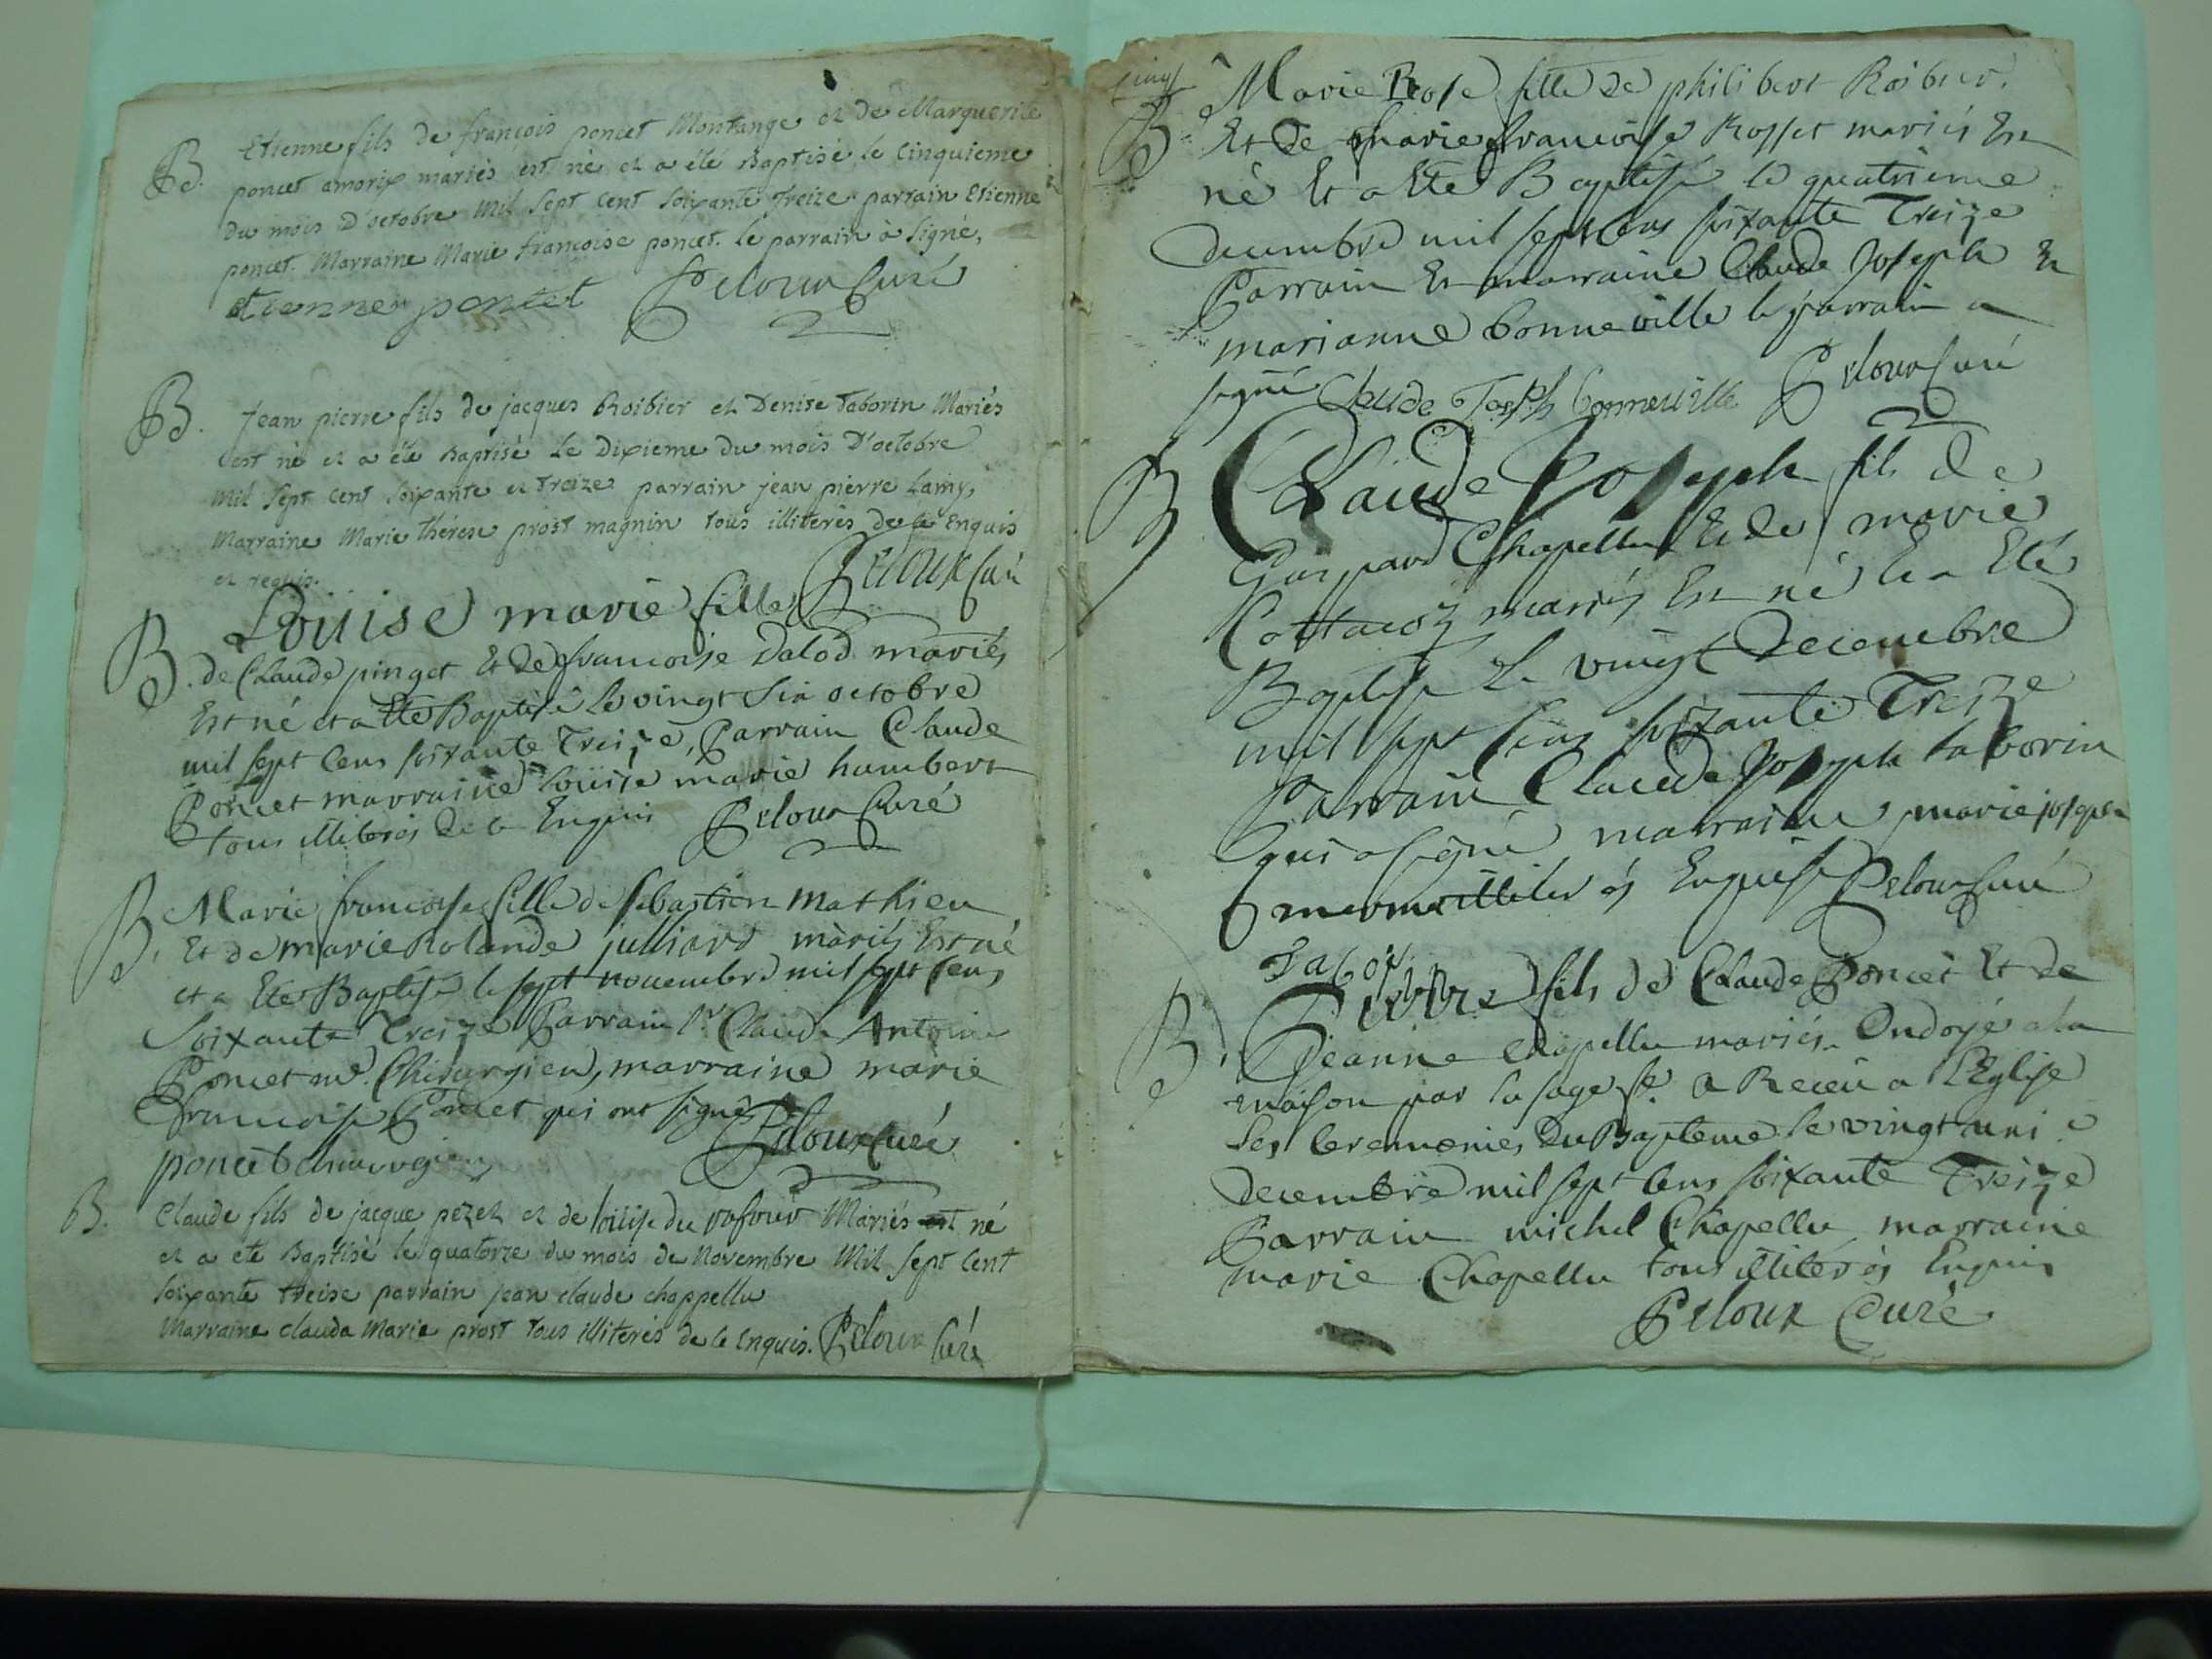 B. Etienne fils de françois poncet Montange et de Marguerite
poncet amorix mariés est né et a été Baptisé le Cinquieme
Du mois D'octobre Mil Sept Cent Soixante Treize parrain Etienne
poncet. Marraine Marie françoise poncet. le parrain à Signé,
etienne poncet Peloux Curé
B. Jean pierre fils de jacques Roibier et Denise Taborin Mariés
est né et a été Baptisé Le Dixieme Du mois D'octobre
Mil Sept Cent Soixante et Treize parrain jean pierre Lamy,
Marraine Marie thérese prost magnin tous illiterés de ce Enquis
et requis. Peloux Curé
B. Louise marie fille
de Claude pinget Et de francoise Dalod mariés
Est né et a Eté Baptisé le vingt Six octobre
mil sept Cens soixante Treize, Parrain Claude
Poncet marraine louise marie humbert
tous illiterés de ce Enquis Peloux Curé
B. Marie francoise fille de sebastien mathieu
Et de marie Rolande julliard mariés Est né
et a Eté Baptisé le sept novembre mil sept Cens
Soixante Treize Parrain Sr. Claude Antoine
Poncet me. Chirurgien, marraine marie
francoise Poncet qui ont signé
poncet chirurgien Peloux Curé
B. Claude fils de jacque pezet et de louise du rafour Mariés est né
et a eté Baptisé le quatorze du mois de Novembre Mil Sept Cent
soixante treise parrain jean claude chappellu
Marraine clauda Marie prost tous illiterés de ce Enquis. Peloux Curé
B. Marie Rose fille de philibert Roibier
Et de marie francoise Rosset mariés Est
né Et a Eté Baptisé le quatrieme
decembre mil sept Cens soixante Treize
Parrain Et marraine Claude Joseph Et
marianne bonneville le parrain a
signé Claude Joseph bonneville Peloux Curé
B Claude Joseph fils de
Gaspard Chapellu Et de marie
Cottavoz mariés Est né Et a Eté
Baptisé Le vingt Decembre
mil sept Cens soixante Treize
Parrain Claude Joseph taborin
qui a signé marraine marie josephe
illiterés Enquise Peloux Curé
Taborin
B. Pierre fils de Claude Poncet Et de
Jeanne Chapellu mariés Ondoyé a la
maison par la sage fe. a Receu a L'Eglise
Les Ceremonies Du Bapteme le vingt uni e
decembre mil sept Cens soixante Treize
Parrain michel Chapellu marraine
marie Chapellu tous illiterés Enquis
Peloux Curé